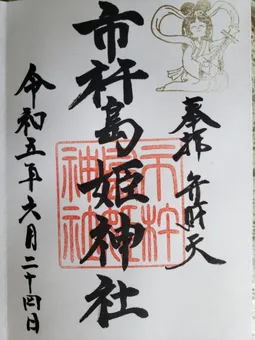 奉拝 弁財天
市杵島姫神社
令和五年六月二十四日
市杵
神社